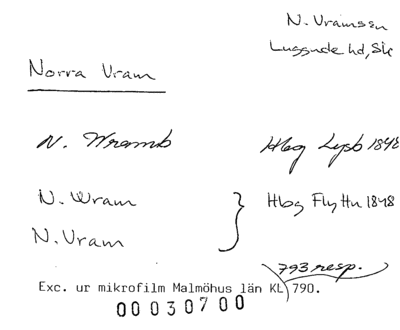 N. Vramssn
Luggude hd, Sk
Norra Vram
N. Wramb Hbg Lysb 1848
N. Wram } Hbg Flyttn 1848
N. Vram
793 resp.
Exc. ur mikrofilm Malmöhus län KL 790.
00030700